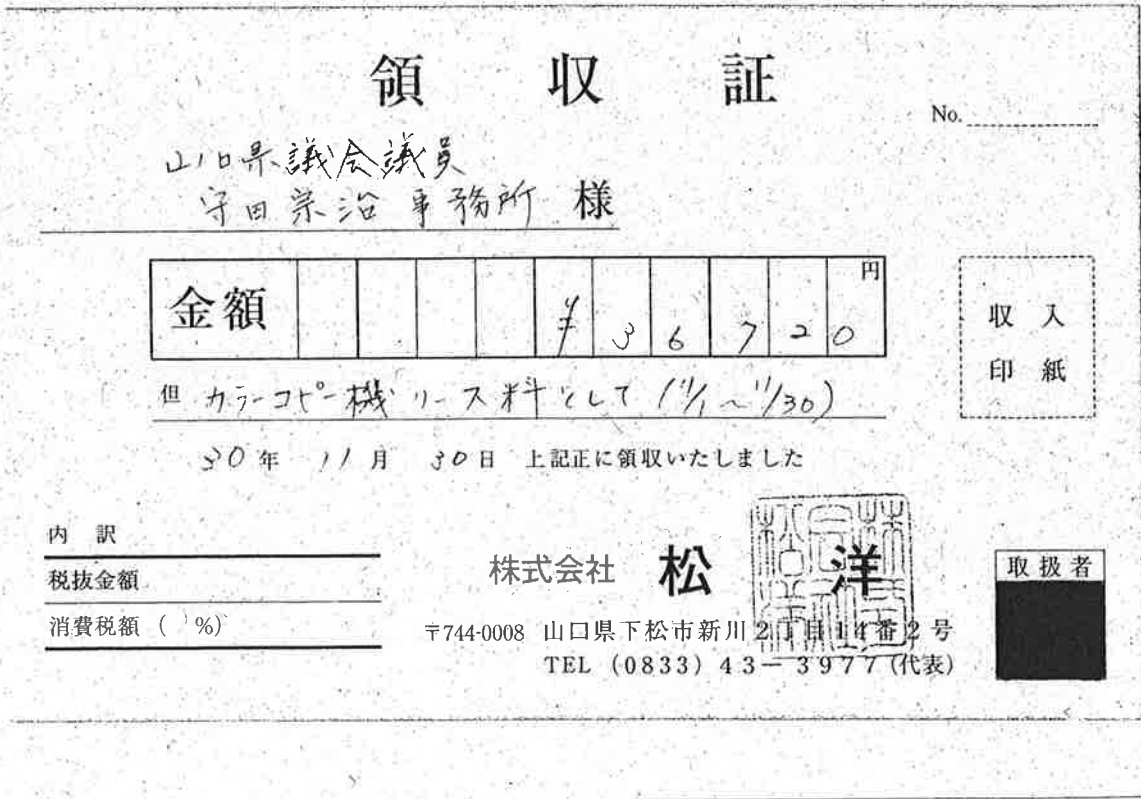 領収証
No.
山口県議会議員
守田宗治事務所 様
金額 ¥36720円
但 カラーコピー機リース料として (11/1~11/30)
30年 11月 30日 上記正に領収いたしました
収入
印紙
内訳
税抜金額
消費税額 ( %)
株式会社 松洋
取扱者
〒744-0008 山口県下松市新川2丁目14番2号
TEL (0833) 43-3977 (代表)